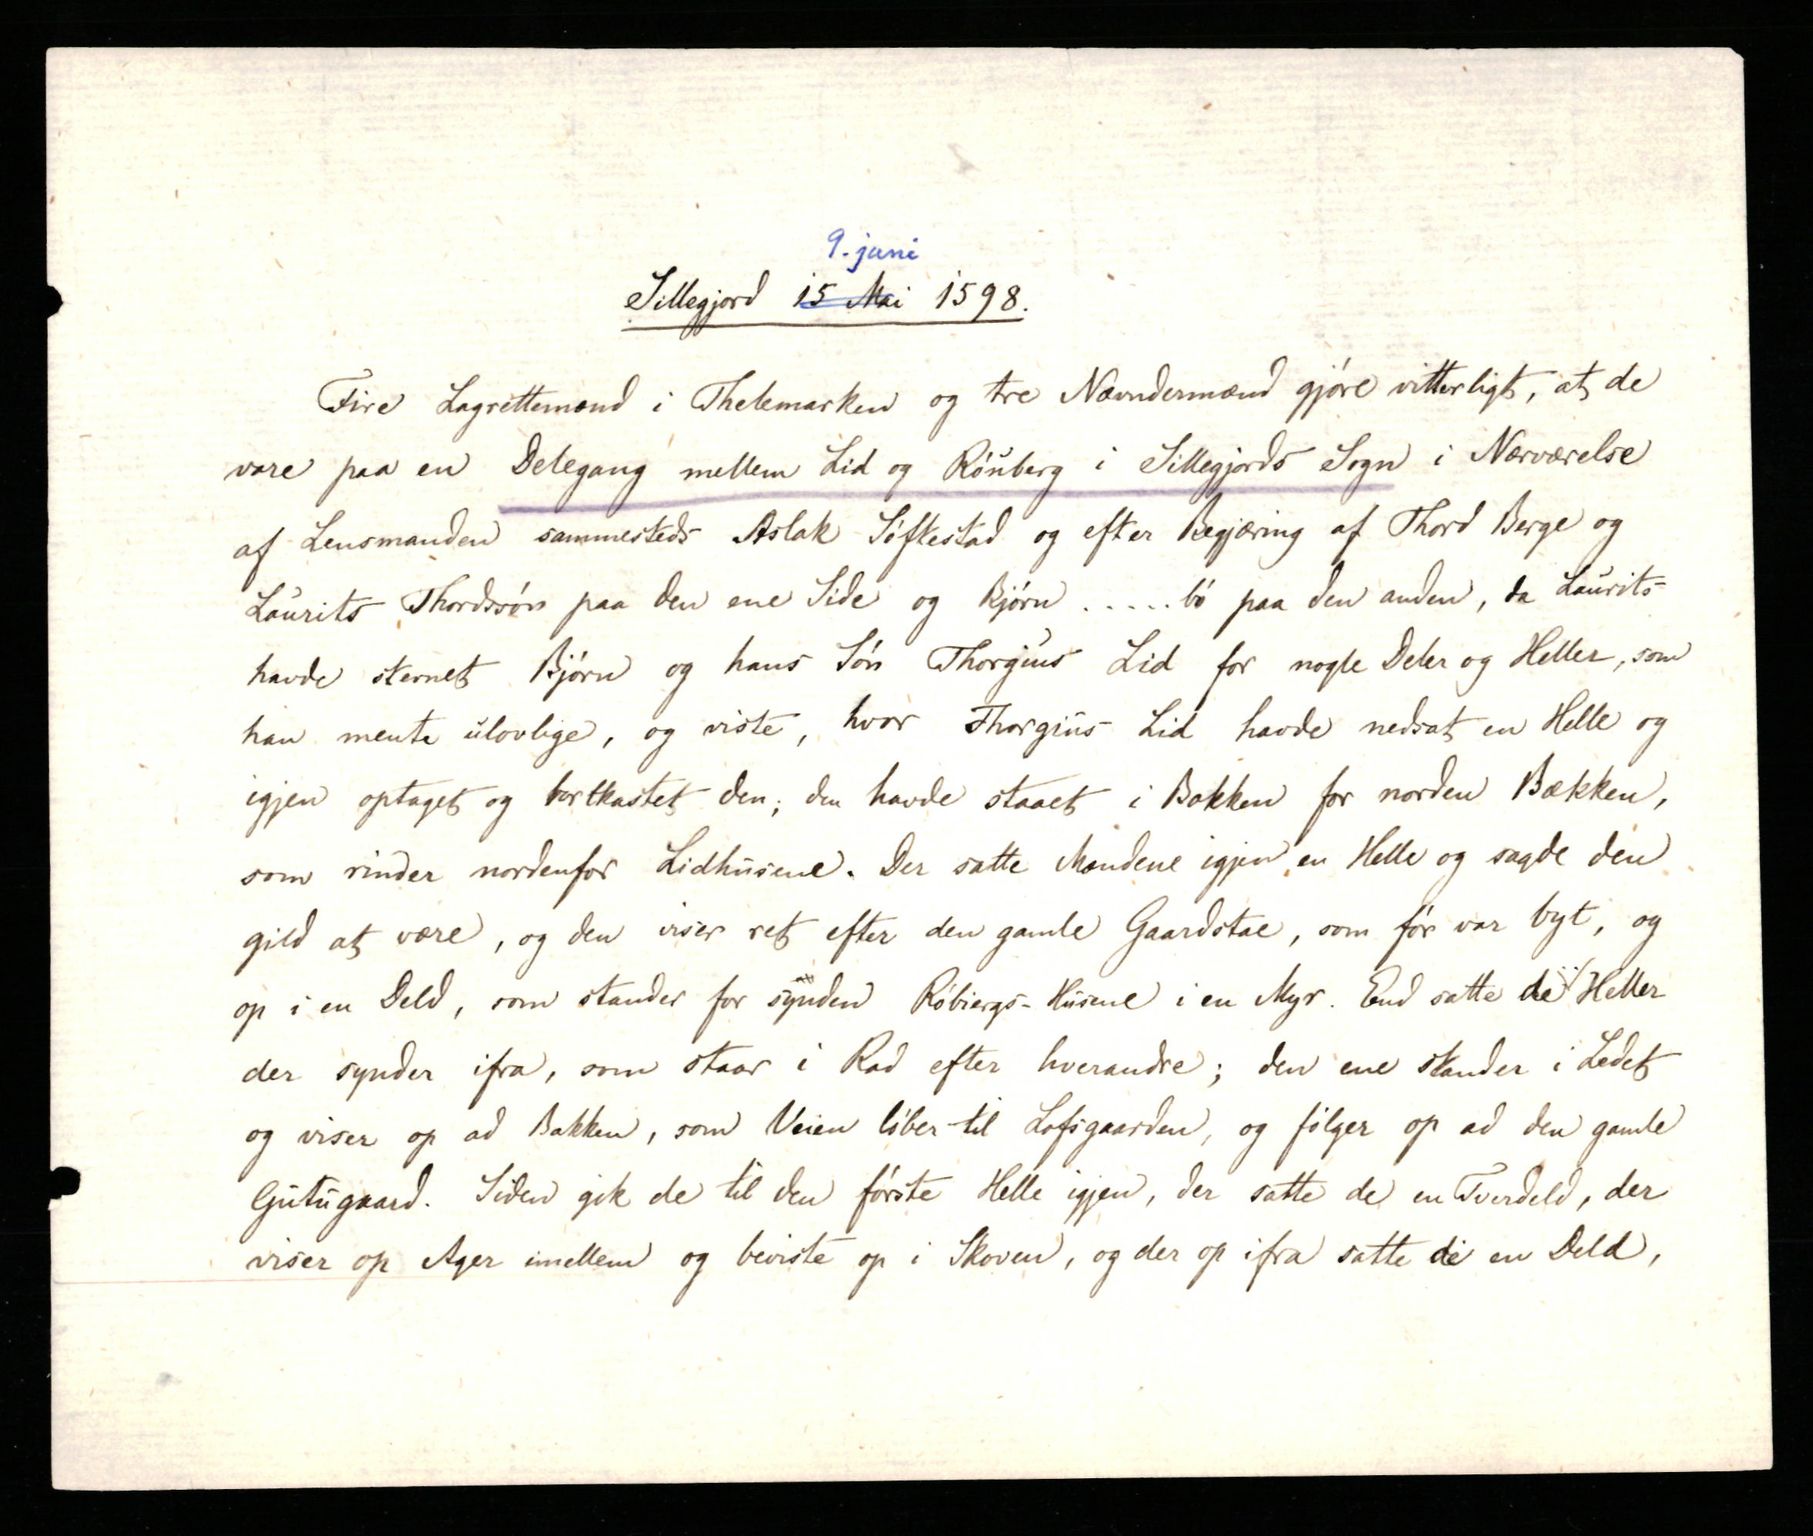 9. juni
Sillegjord 15 Mai 1598.
Fire Lagrettemænd i Thelemarken og tre Nævndermænd gjóre vitterligt, at de
vare paa en Delegang mellem Lid og Róuberg i Sillegjords Sogn i Nærværelse
af Lensmanden sammesteds Aslak Sóftestad og efter Begjæring af Thord Berge og
Laurits Thordssón paa den ene Side og Bjórn ..... bó paa den anden, da Laurits
havde stevnet Bjórn og hans Són Thorgius Lid for nogle Deler og Heller, som
han mente ulovlige, og viste, hvor Thorgius Lid havde nedsat en Helle og
igjen optaget og bortkastet den; den havde staaet i Bakken for norden Bækken,
som rinder nordenfor Lidhusene. Der satte Mændene igjen en Helle og sagde den
gild at være, og den viser ret efter den gamle Gaardstae, som fór var byt, og
op i en Deld, som stander for synden Róbiergs-Husene i en Myr. End satte de ii Heller
der synder ifra, som staar i Rad efter hverandre; den ene stander i Ledet
og viser op ad Bakken, som Veien lóber til Lofsgaarden, og fólger op ad den gamle
Gutugaard. Siden gik de til den fórste Helle igjen, der satte de en Tverdeld, der
viser op Ager imellem og beviste op i Skoven, og der op ifra satte de en Deld,